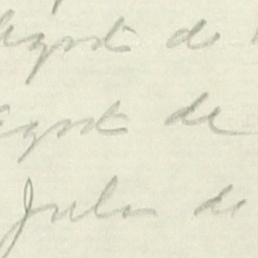 Agost de
Agost de
Julio de